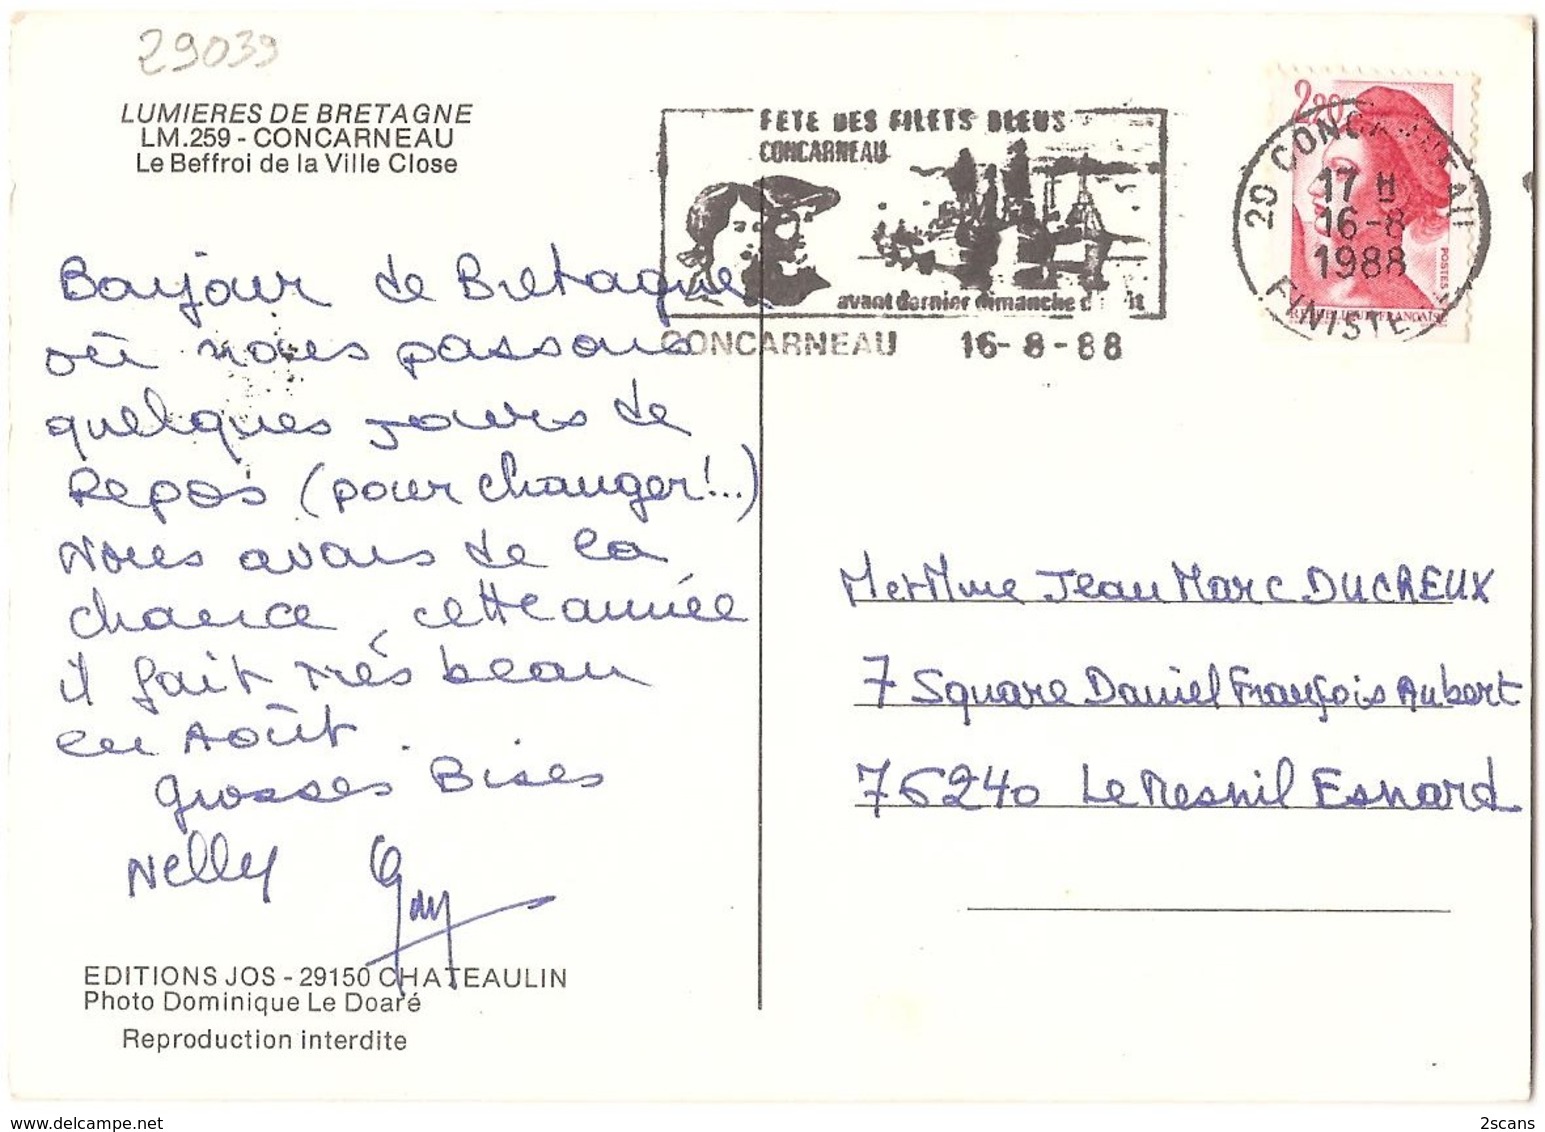 29039
LUMIERES DE BRETAGNE
LM.259 - CONCARNEAU
Le Beffroi de la Ville Close
FETE DES FILETS BLEUS
CONCARNEAU
avant dernier dimanche d'
CONCARNEAU 16-8-88
2,20
POSTES
REPUBLIQUE FRANÇAISE
29 CONCARNEAU
17 H
16-8
1988
FINISTE
Bonjour de Bretagne
où nous passons
quelques jours de
Repos (pour changer!..)
Nous avons de la
chance, cette année
il fait très beau
en Août.
Grosses Bises
Nelly Guy
M et Mme Jean Marc DUCREUX
7 Square Daniel François Aubert
76240 Le Mesnil Esnard
EDITIONS JOS - 29150 CHATEAULIN
Photo Dominique Le Doaré
Reproduction interdite
www.delcampe.net
2scans